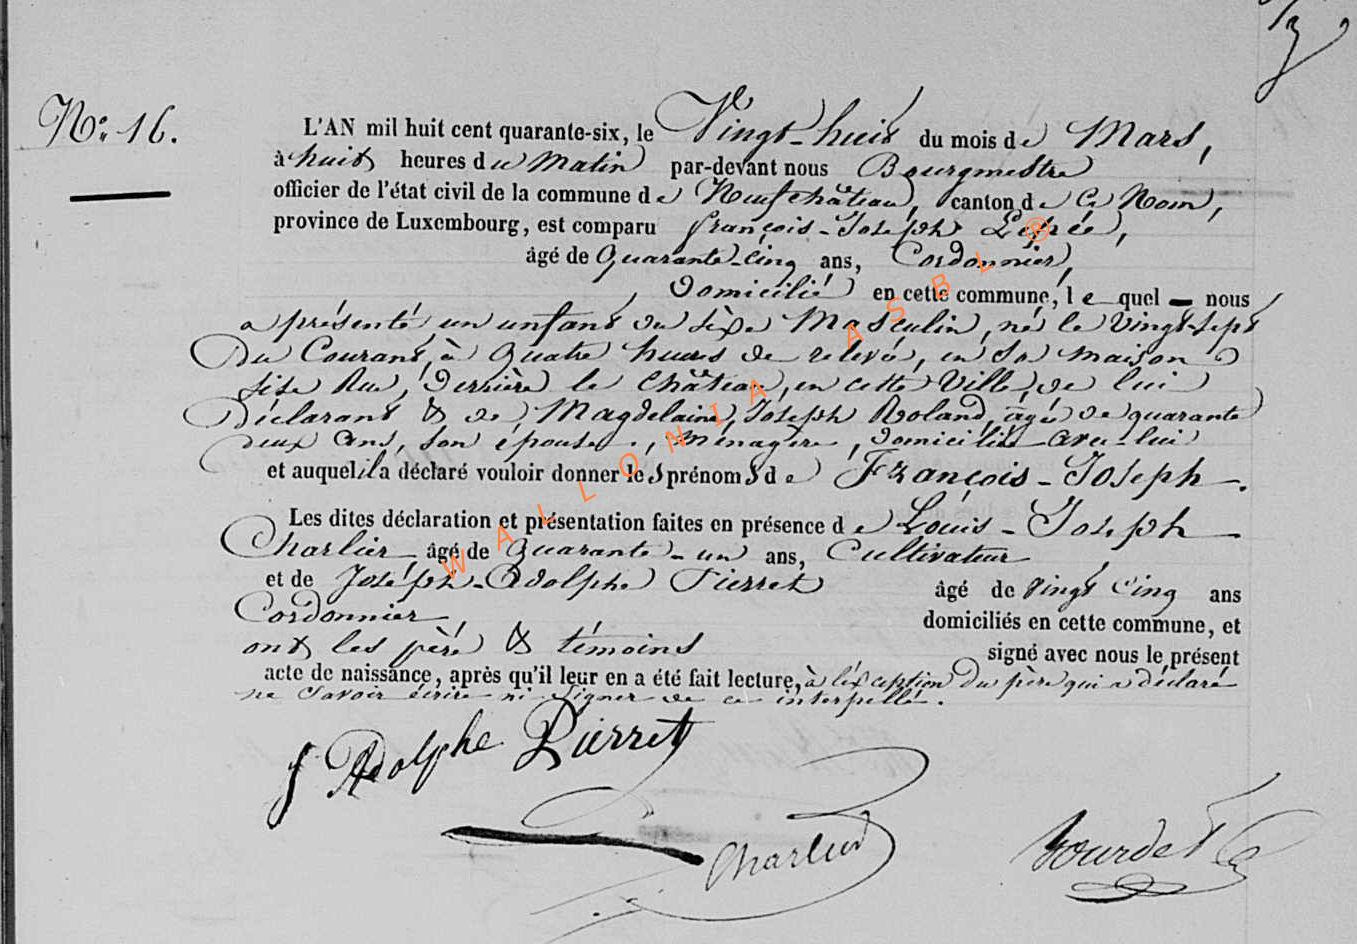 No. 16.
L'AN mil huit cent quarante-six, le Vingt-huit du mois de Mars,
à huit heures du Matin par-devant nous Bourgmestre
officier de l'état civil de la commune de Neufchâteau, canton de Ce Nom,
province de Luxembourg, est comparu françois-Joseph
âgé de Quarante-Cinq ans, Cordonnier,
Domicilié en cette commune, lequel nous
a présenté un enfant du sèxe Masculin, né le Vingt-sept
Du Courant, à Quatre heures de relevé, en Sa maison
sise Rue, Derrière le Château, en cette Ville, de lui
Déclarant & de Magdelaine, Joséph Roland, âgé de quarante
deux ans, son épouse, Ménagère, domicilié avec lui
et auquel il a déclaré vouloir donner les prénoms de François-Joséph.
Les dites déclaration et présentation faites en présence de Louis-Joseph
Charlier, âgé de Quarante-un ans, Cultivateur
et de Joséph-Adolphe Pierret âgé de Vingt Cinq ans
Cordonnier, domiciliés en cette commune, et
ont les père & témoins signé avec nous le présent
acte de naissance, après qu'il leur en a été fait lecture, à l'éxception du père qui a déclaré
ne Savoir écrire ni Signer de ce interpellé.
J Adolphe Pierret
Charlier
WALLONIA ASBL ®